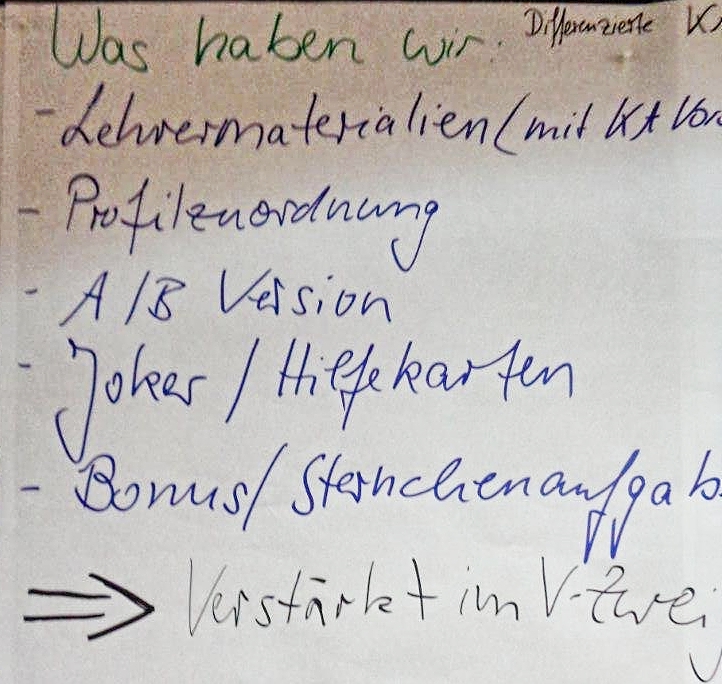 Was haben wir: Differenzierte
- Lehrermaterialien (mit KA Vor
- Profilzuordnung
- A/B Version
- Joker / Hilfekarten
- Bonus/ Sternchenaufgab
⇒ Verstärkt im V-Zweig